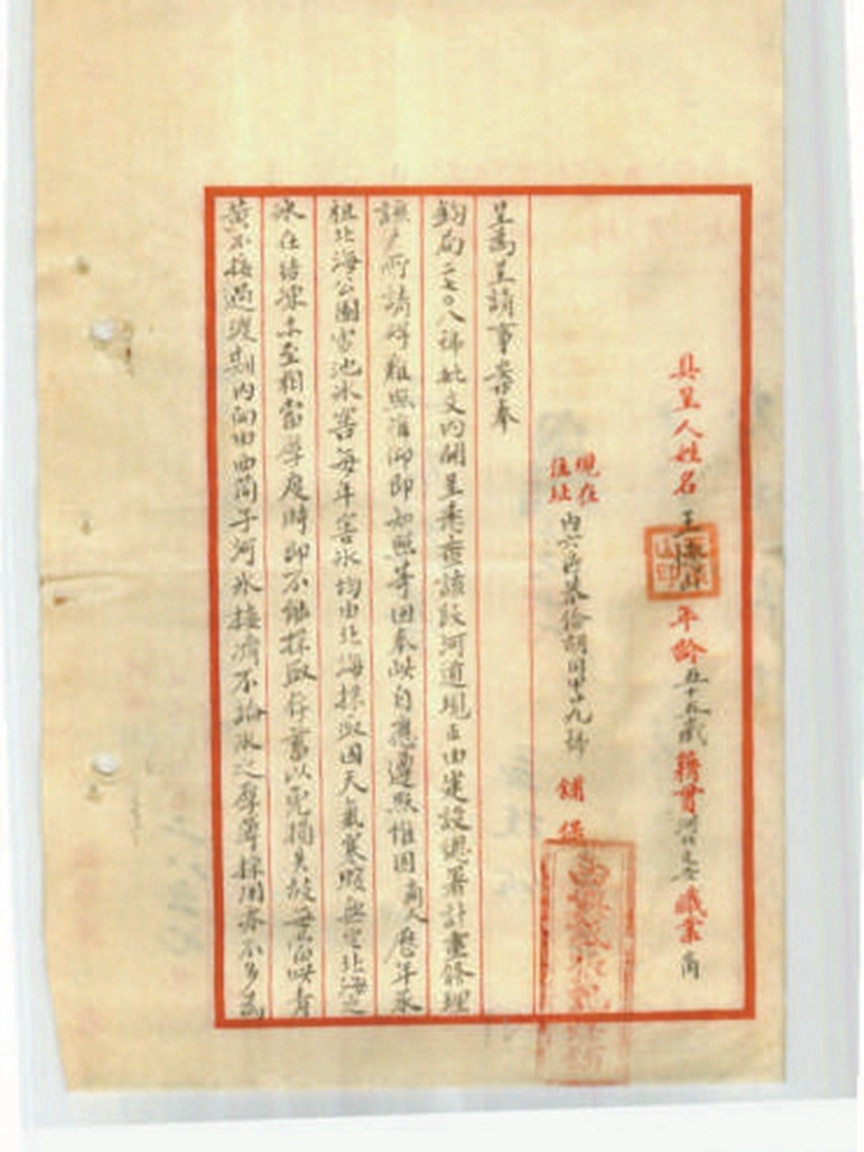 具呈人姓名 王 年龄五十五歲 籍貫河北文安 職業商
現在住址 内六區 胡同 九號 舖保
呈為呈請事案奉
鈞局二七〇八號批文内開呈悉查該段河道現正由建設總署計畫修理
該 所請碍難照准仰即知照等因奉此自應遵照惟因商人歷年承
租北海公園雪池冰窖每年窖冰均由北海採取因天氣寒暖無定北海之
冰在結凍未至相當厚度時即不能採取存蓄以免損失故每當此青
黃不接過渡期内向由西筒子河冰接濟不論冰之厚薄採用亦不多為